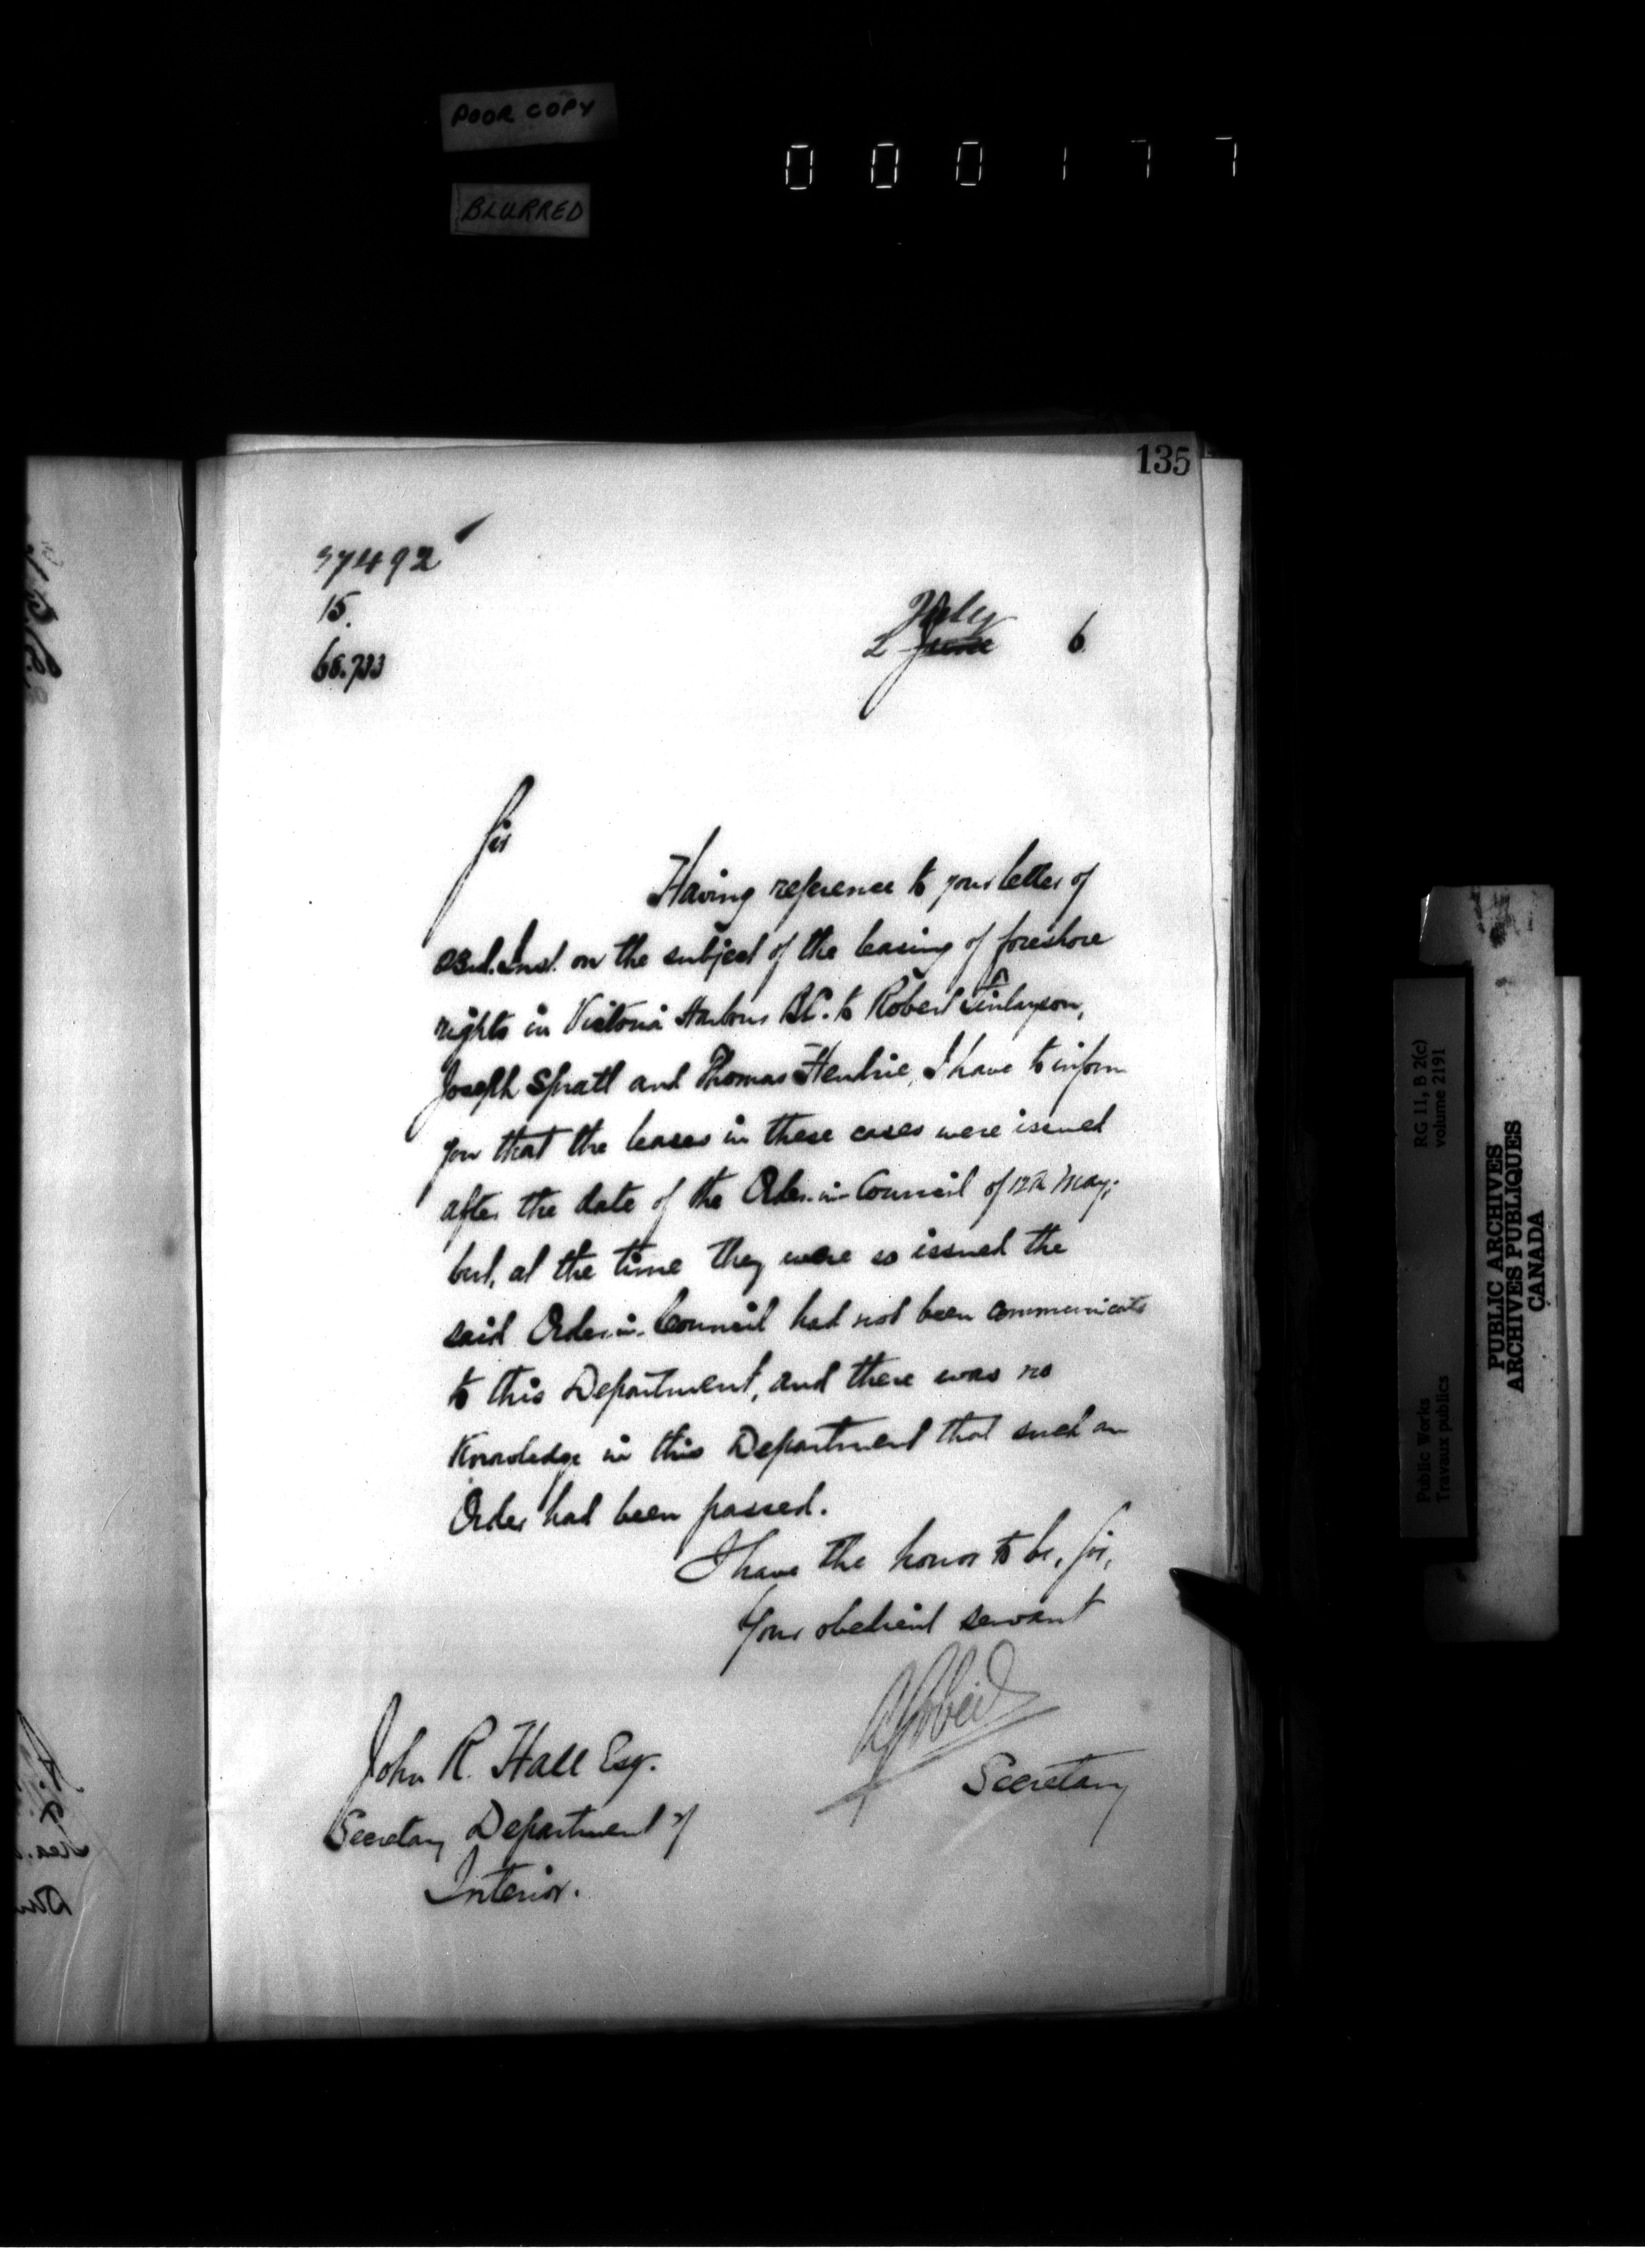 POOR COPY
BLURRED
000177
135
37492
15.
68.733
July
2 June 6
Sir
Having reference to your letter of
23rd. Inst. on the subject of the leasing of foreshore
rights in Victoria Harbour B.C. to Robert Finlayson,
Joseph Spratt and Thomas Hendrie, I have to inform
you that the leases in these cases were issued
after the date of the Order-in-Council of 12th May;
but, at the time they were so issued the
said Order-in-Council had not been communicated
to this Department, and there was no
Knowledge in this Department that such an
Order had been passed.
I have the honor to be, Sir,
Your obedient servant
A Gobeil
Secretary
John R. Hall Esq.
Secretary Department of
Interior.
RG 11, B 2(c)
volume 2191
Public Works
Travaux publics
PUBLIC ARCHIVES
ARCHIVES PUBLIQUES
CANADA